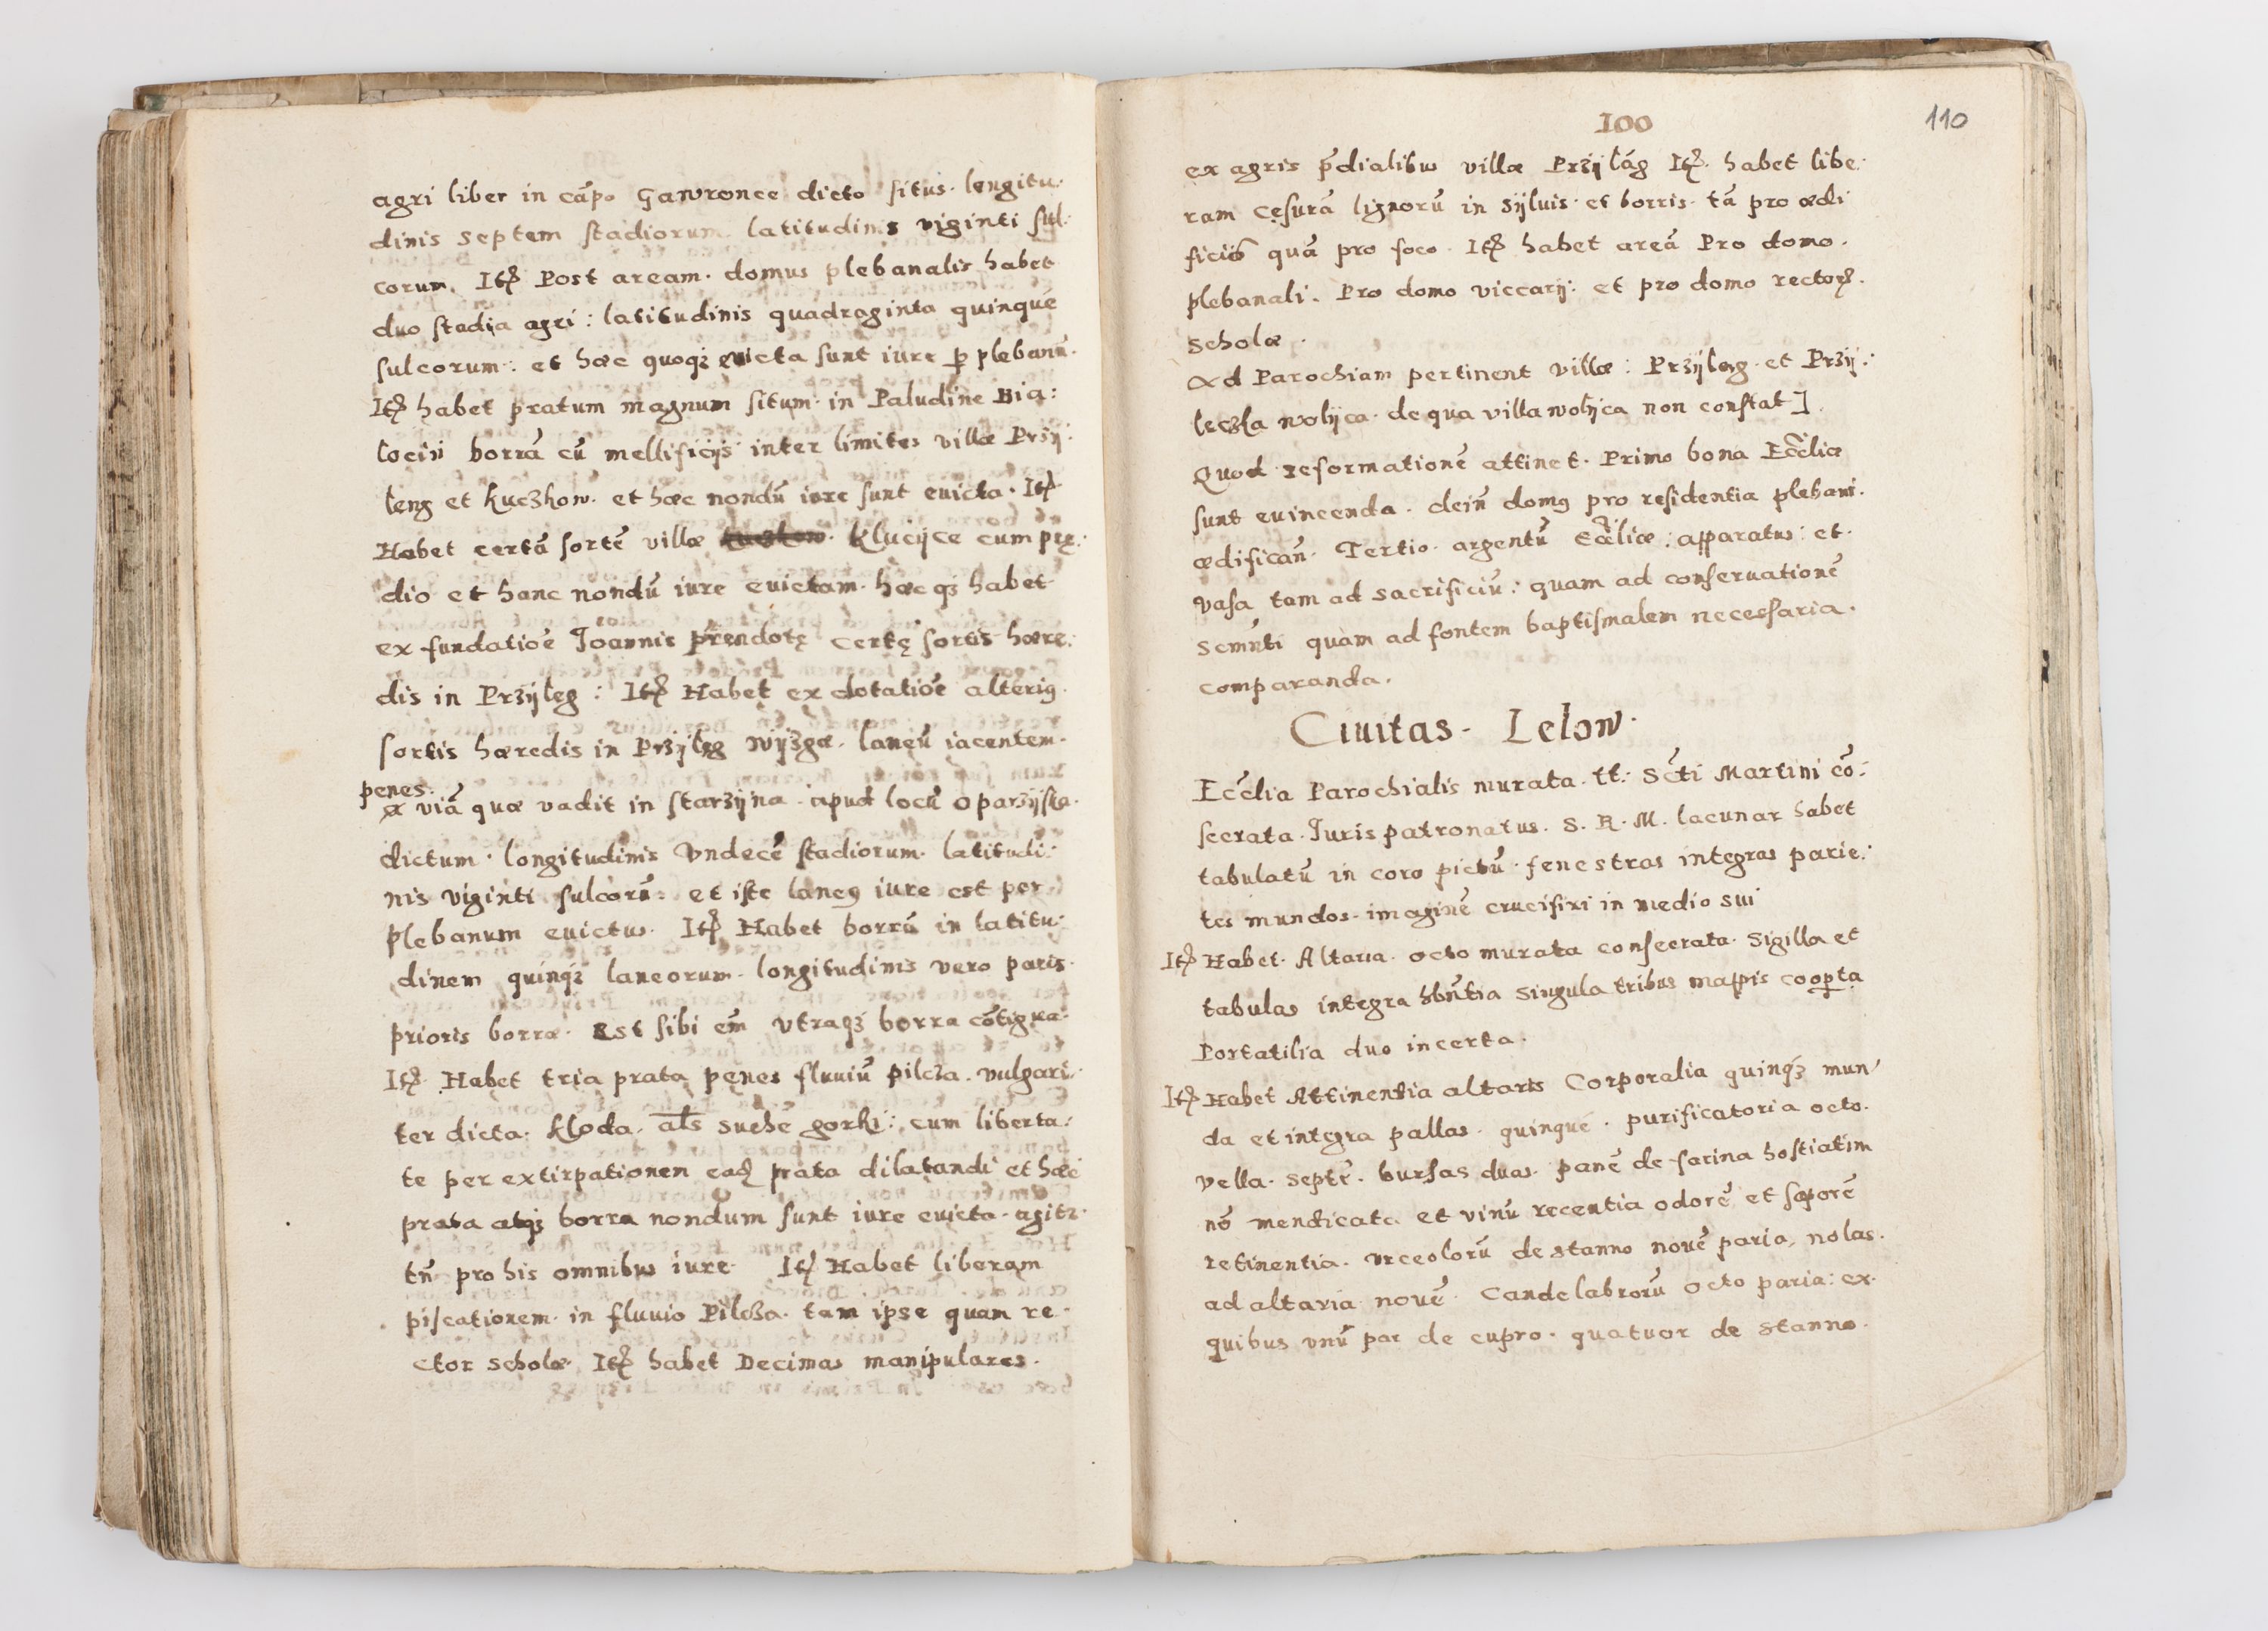 agri liber in cãpo Gawronce dicto situs. longitu:
dinis septem stadiorum. latitudinis viginti sul:
corum. Itȩ Post aream. domus plebanalis habet
duo stadia agri: latitudinis quadraginta quinque
sulcorum: et hæc quoqꝫ euicta sunt iure ꝑ plebanũ.
Itȩ habet pratum magnum situm in Paludine Bia:
locin borrã cũ mellificijs inter limites villæ Przij:
leng et kuczkow. et hæc nondũ iure sunt euicta. Itȩ
Habet certã sortẽ villæ Klucijce cum prę:
dio et hanc nondũ iure euictam. hæcqꝫ habet
ex fundatiõe Joannis prendotę certę sortis hære:
dis in Przijleg: Itȩ Habet ex dotatiõe alteriꝰ
sortis hæredis in Przijleg wijzgæ. laneũ iacentem.
penes.
viã quæ vadit in starzijna. apud locũ oparzijska.
dictum. longitudinis Vndecẽ stadiorum. latitudi:
nis viginti sulcorũ: et iste laneꝰ iure est per
plebanum euictus. Itȩ Habet borrã in latitu:
dinem quinqꝫ laneorum. longitudinis vero paris.
prioris borræ. Est sibi em̃ vtraqꝫ borra cõtigua.
Itȩ. Habet tria prata penes fluuiũ pilcza. vulgari:
ter dicta: kloda. al̃s suche gorki: cum liberta:
te per extirpationem eadȩ prata dilatandi et hæc
prata atqꝫ borra nondum sunt iure euicta. agitr.
tñ pro his omnibus iure. Itȩ Habet liberam
piscationem. in fluuio Pilcza. tam ipse quam re-
ctor scholæ. Itȩ habet Decimas manipulares.
100
110
ex agris p̃dialibus villæ Przijlág Itȩ. habet libe:
ram cęsurã lignorũ in sijluis. et borris. tã pro ædi
ficiis quã pro foco. Itȩ habet areã Pro domo.
plebanali. Pro domo viccarij: et pro domo rectorȩ.
scholæ.
Ad Parochiam pertinent villæ: Przijleng. et Przij:
leczka wolijca. de qua villa wolijca non constat].
Quod reformationẽ attinet. Primo bona Ecc̃liæ
sunt euincenda. dein̄ domꝰ pro residentia plebani.
ædifican̄. Tertio. argentũ Ecc̃liæ: apparatus: et.
vasa tam ad sacrificiũ: quam ad conseruationẽ
semñti quam ad fontem baptismalem necessaria.
comparanda.
Ciuitas. Lelow.
Ecc̃lia Parochialis murata. tt: Sc̃ti Martini cõ:
secrata. Juris patronatus. S. R. M. lacunar habet
tabulatũ in coro pictũ. fenestras integras parie:
tes mundos. imaginẽ crucifixi in medio sui
Itȩ Habet. Altaria. octo murata consecrata. Sigilla et
tabulas integra hñtia singula tribus mappis cooꝑta
Portatilia duo incerta.
Itȩ Habet Attinentia altaris Corporalia quinqꝫ mun
da et integra pallas. quinque. purificatoria octo.
vella. septẽ. bursas duas. panẽ de farina hostiatim
nõ mendicata et vinũ recentia odorẽ et saporẽ
retinentia. vrceolorũ de stanno nouẽ paria, nolas.
ad altaria nouẽ. Candelabrorũ octo paria: ex.
quibus vnũ par de cupro. quatuor de stanno.